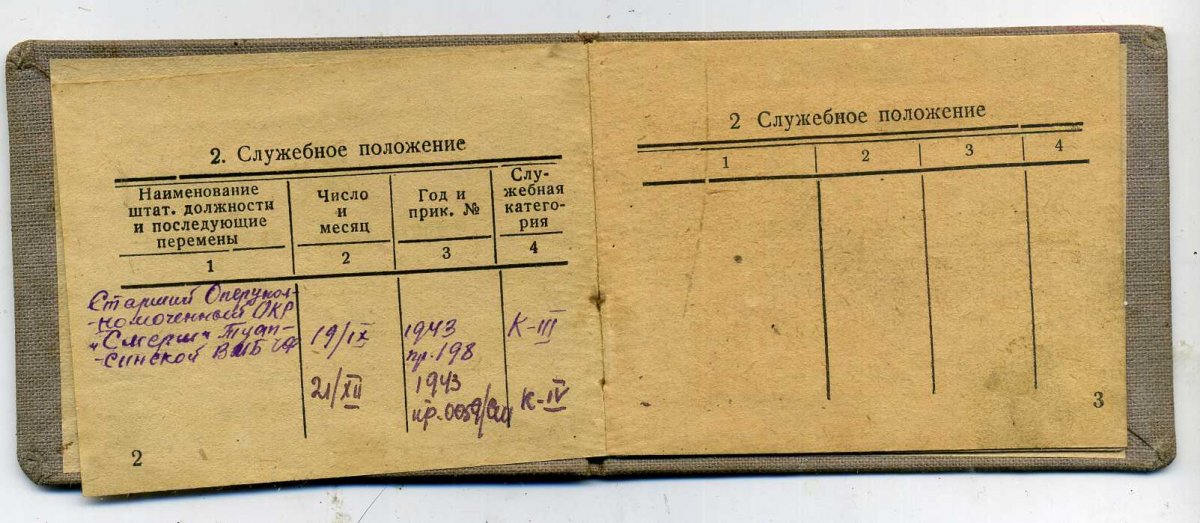 2. Служебное положение
Наименование
штат. должности
и последующие
перемены
Число
и
месяц
Год и
прик. №
Слу-
жебная
катего-
рия
1 2 3 4
Старший Оперупол-
-номоченный ОКР
"Смерш" Туап-
-синской ВМБ ЧФ
19/IX
1943
пр. 198
К-III
21/XII
1943
пр. 0059/
К-IV
2
2 Служебное положение
1 2 3 4
3